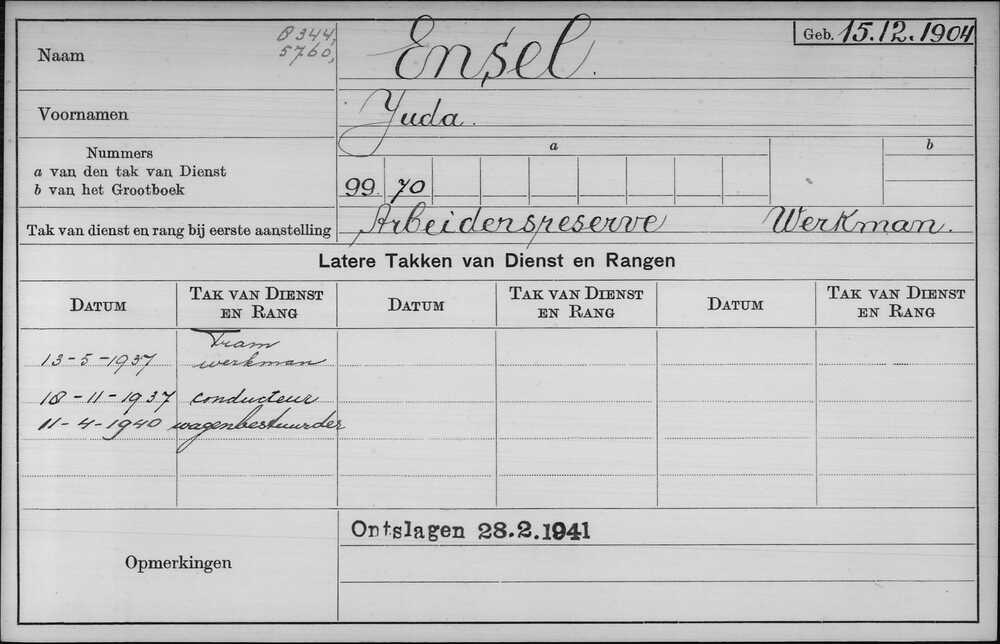 Naam
8344,
5760,
Ensel.
Geb. 15.12.1904
Voornamen
Juda.
Nummers
a van den tak van Dienst
b van het Grootboek
a
b
99 70
Tak van dienst en rang bij eerste aanstelling
Arbeidersreserve Werkman.
Latere Takken van Dienst en Rangen
Datum Tak van Dienst en Rang Datum Tak van Dienst en Rang Datum Tak van Dienst en Rang
Tram
13-5-1937 werkman
18-11-1937 conducteur
11-4-1940 wagenbestuurder
Opmerkingen
Ontslagen 28.2.1941